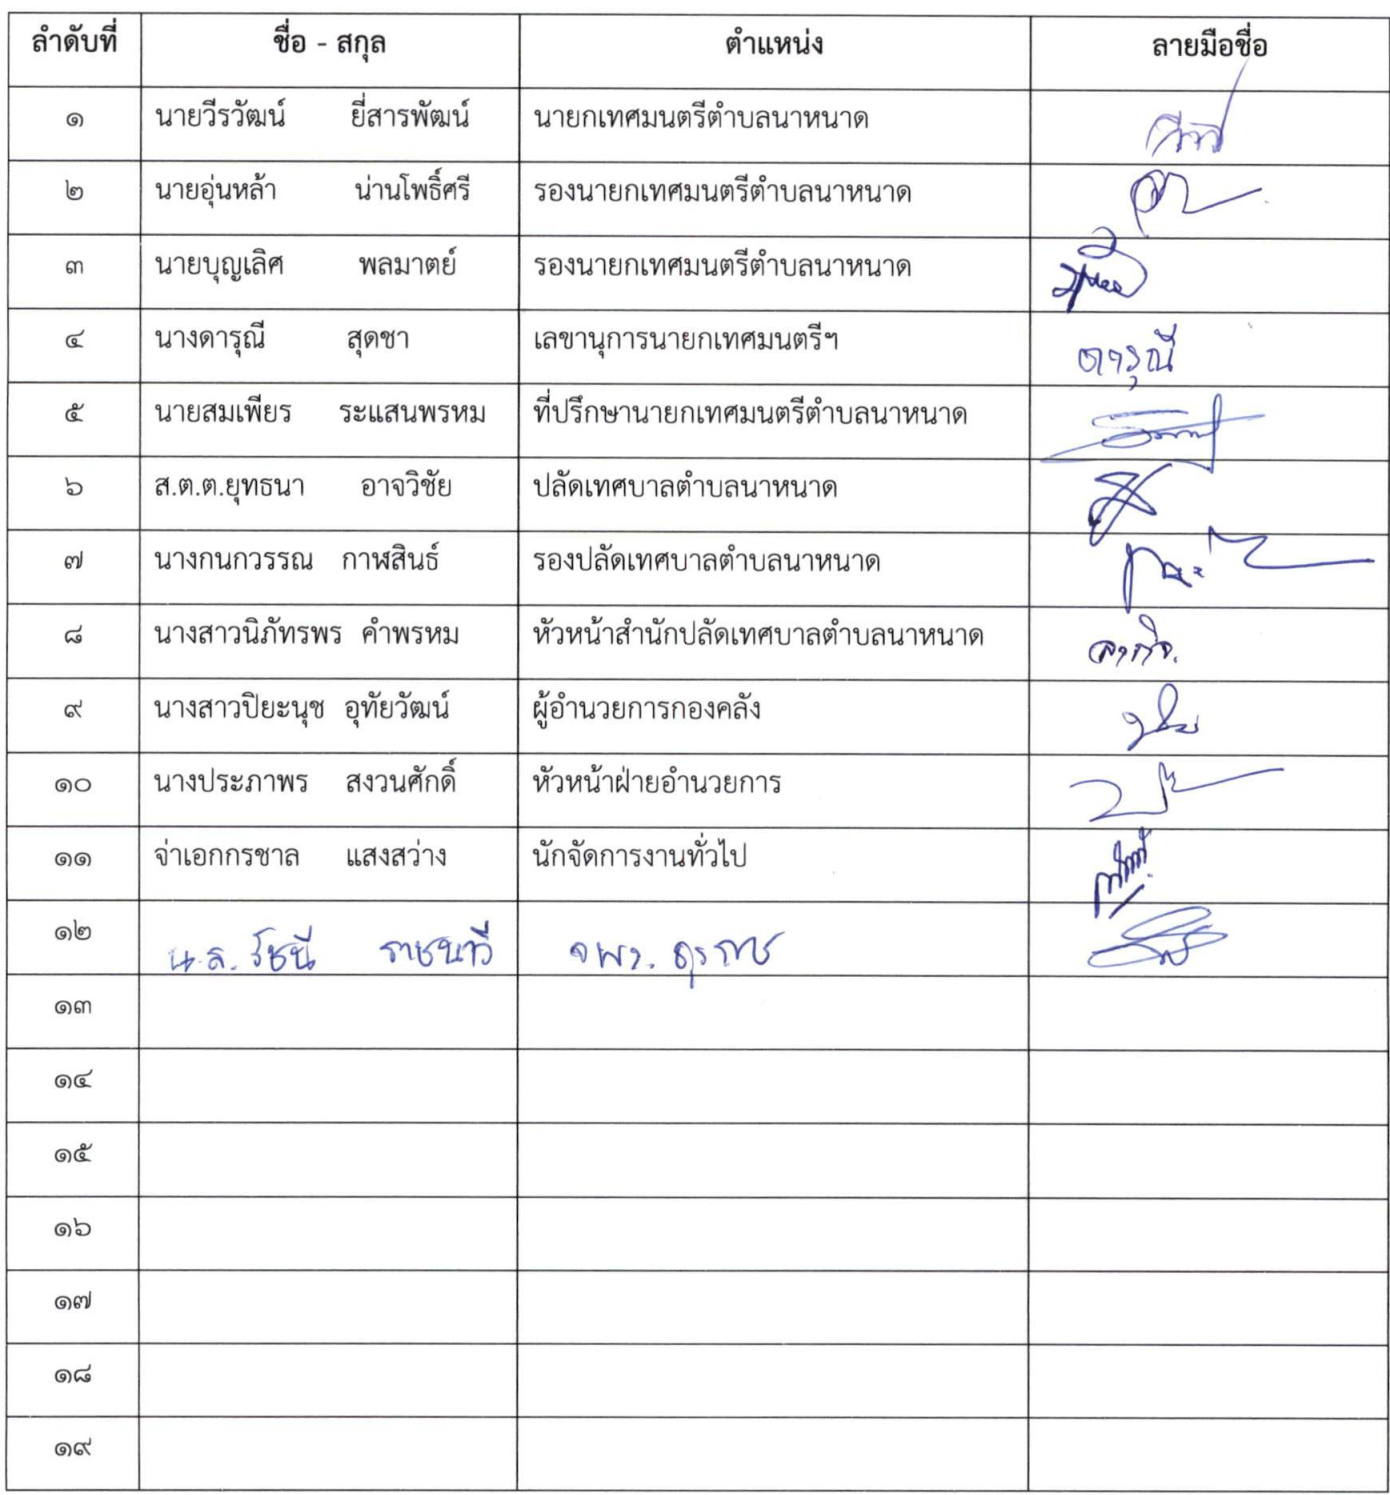 ลำดับที่ ชื่อ - สกุล ตำแหน่ง ลายมือชื่อ
๑ นายวีรวัฒน์ ยี่สารพัฒน์ นายกเทศมนตรีตำบลนาหนาด
๒ นายอุ่นหล้า น่านโพธิ์ศรี รองนายกเทศมนตรีตำบลนาหนาด
๓ นายบุญเลิศ พลมาตย์ รองนายกเทศมนตรีตำบลนาหนาด
๔ นางดารุณี สุดชา เลขานุการนายกเทศมนตรีฯ ดารุณี
๕ นายสมเพียร ระแสนพรหม ที่ปรึกษานายกเทศมนตรีตำบลนาหนาด
๖ ส.ต.ต.ยุทธนา อาจวิชัย ปลัดเทศบาลตำบลนาหนาด
๗ นางกนกวรรณ กาฬสินธ์ รองปลัดเทศบาลตำบลนาหนาด
๘ นางสาวนิภัทรพร คำพรหม หัวหน้าสำนักปลัดเทศบาลตำบลนาหนาด
๙ นางสาวปิยะนุช อุทัยวัฒน์ ผู้อำนวยการกองคลัง
๑๐ นางประภาพร สงวนศักดิ์ หัวหน้าฝ่ายอำนวยการ
๑๑ จ่าเอกกรชาล แสงสว่าง นักจัดการงานทั่วไป
๑๒ น.ส. รัชนี จพง. ธุรการ
๑๓
๑๔
๑๕
๑๖
๑๗
๑๘
๑๙